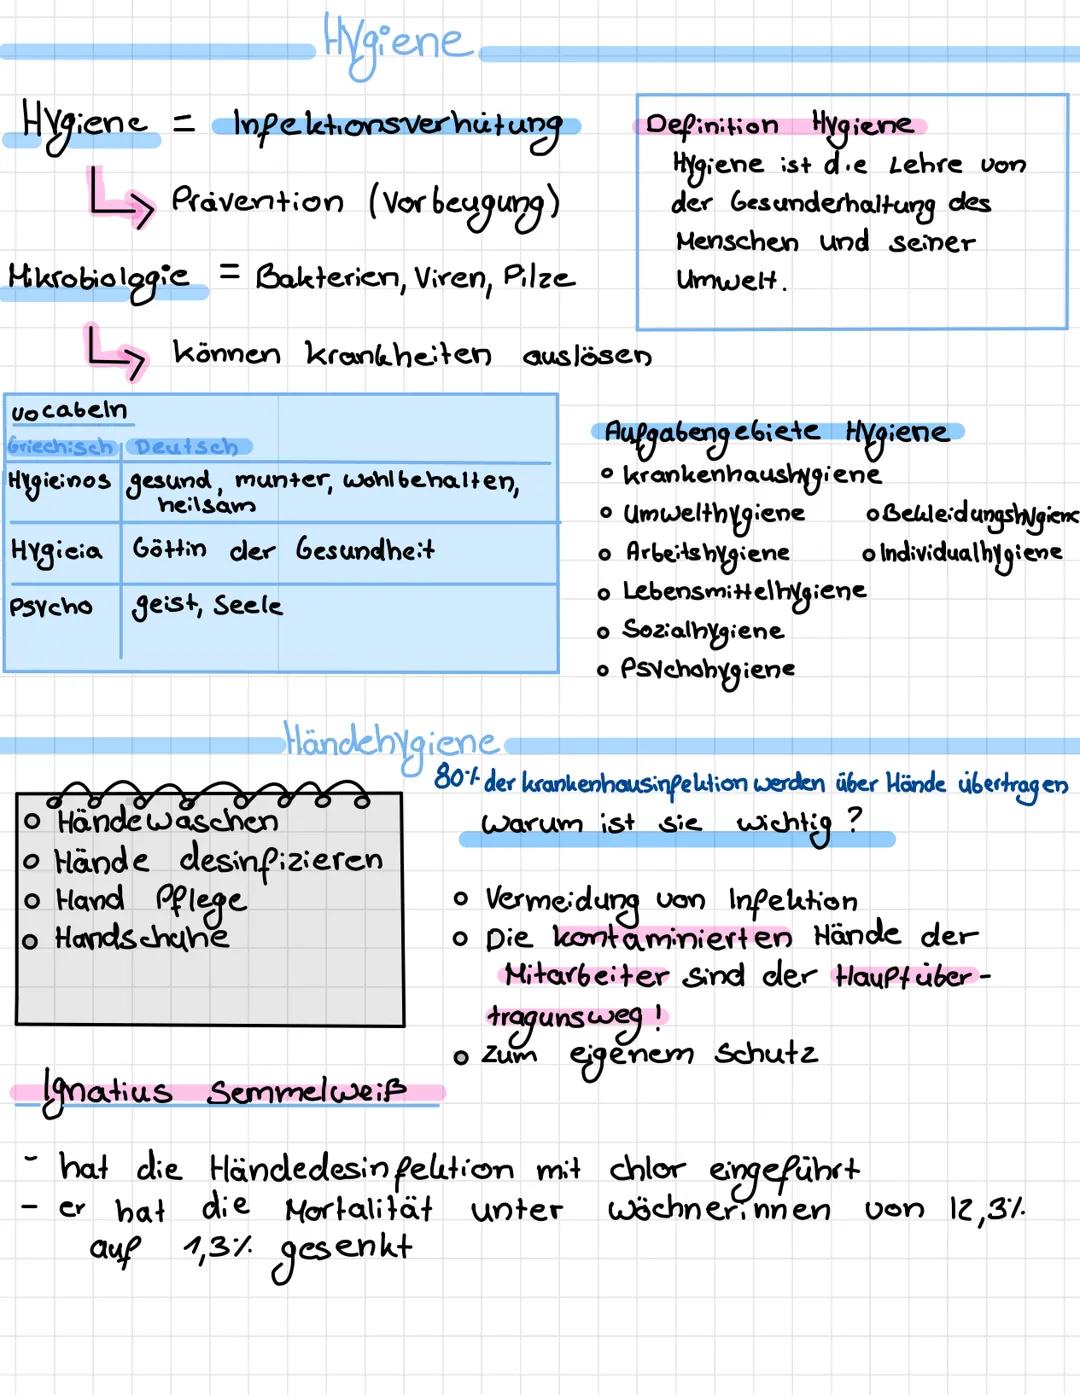 Hygiene
Hygiene = Infektionsverhütung
Prävention (Vorbeugung)
Mikrobiologie = Bakterien, Viren, Pilze
können krankheiten auslösen
Definition Hygiene
Hygiene ist die Lehre von
der Gesunderhaltung des
Menschen und seiner
Umwelt.
vocabeln
Griechisch Deutsch
Hygieinos gesund, munter, wohlbehalten,
heilsam
Hygieia Göttin der Gesundheit
Psycho geist, Seele
Aufgabengebiete Hygiene
o krankenhaushygiene
o Umwelthygiene o Bekleidungshygiene
o Arbeitshygiene o Individualhygiene
o Lebensmittelhygiene
o Sozialhygiene
o Psychohygiene
Händehygiene
80% der krankenhausinfektion werden über Hände übertragen
warum ist sie wichtig?
o Händewaschen
o Hände desinfizieren
o Hand Pflege
o Handschuhe
o Vermeidung von Infektion
o Die kontaminierten Hände der
Mitarbeiter sind der Hauptüber-
tragunsweg!
o zum eigenem schutz
Ignatius Semmelweiß
- hat die Händedesinfektion mit chlor eingeführt
- er hat die Mortalität unter wöchnerinnen von 12,3%
auf 1,3% gesenkt